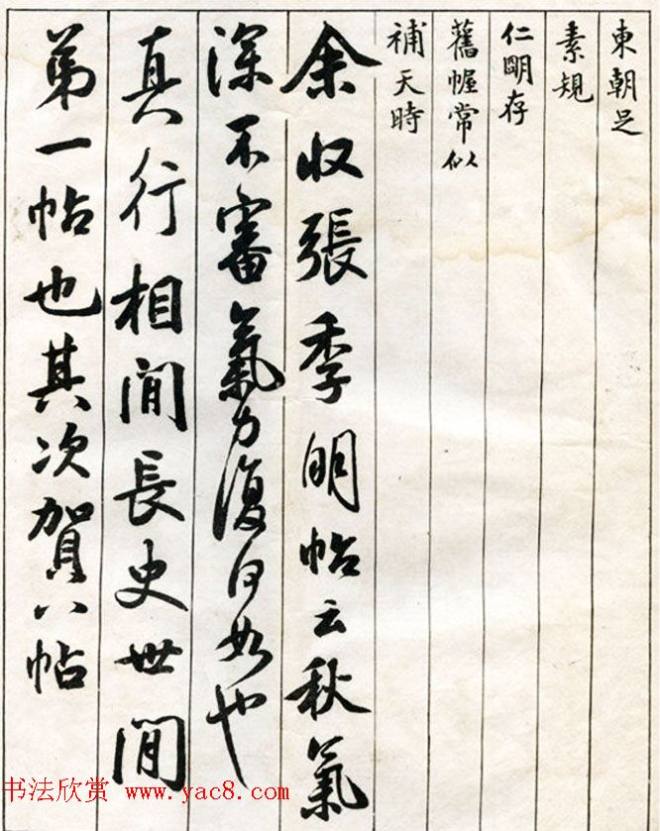 東朝足
素規
仁明存
舊幄常似
補天時
余收張季明帖云秋氣
深不審氣力復何如也
真行相間長史世間
第一帖也其次賀八帖
书法欣赏 www.yac8.com